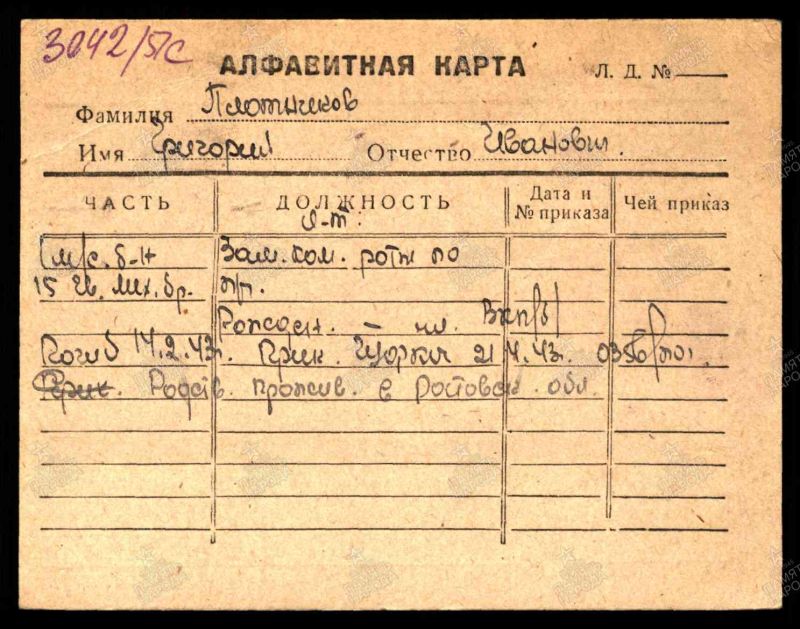 3042/51с
АЛФАВИТНАЯ КАРТА Л. Д. №
Фамилия Плотников
Имя Григорий Отчество Иванович.
ЧАСТЬ ДОЛЖНОСТЬ Дата и № приказа Чей приказ
л-т.
м/с. б-н Зам. ком. роты по
15 гв. мех. бр. п/ч.
Рожден. – чл. ВКП/б/
Погиб 14.2.43г. Прик. 21 4.43г. 0356/пог.
Прик. Родств. прожив. в Ростовск. обл.